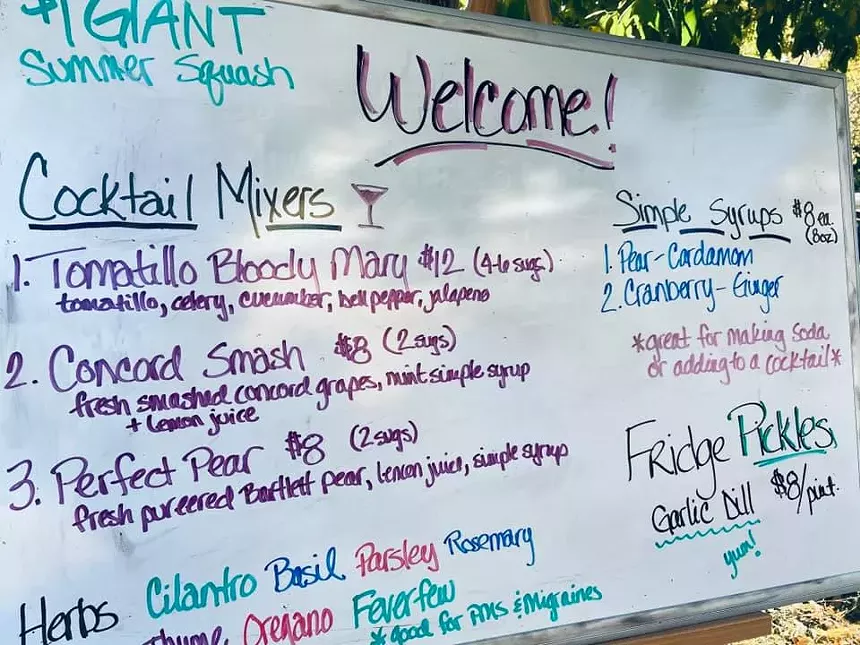 $1 GIANT
Summer Squash
Welcome!
Cocktail Mixers
1. Tomatillo Bloody Mary $12 (4-6 svgs)
tomatillo, celery, cucumber, bell pepper, jalapeno
2. Concord Smash $8 (2 svgs)
fresh smashed concord grapes, mint simple syrup
+ lemon juice
3. Perfect Pear $8 (2 svgs)
fresh pureered Bartlett pear, lemon juice, simple syrup
Simple Syrups $8 ea.
(8oz)
1. Pear-Cardamom
2. Cranberry-Ginger
*great for making soda
or adding to a cocktail*
Fridge Pickles
Garlic Dill $8/pint
yum!
Herbs Cilantro Basil Parsley Rosemary
Thyme Oregano Feverfew
*good for PMS & Migraines